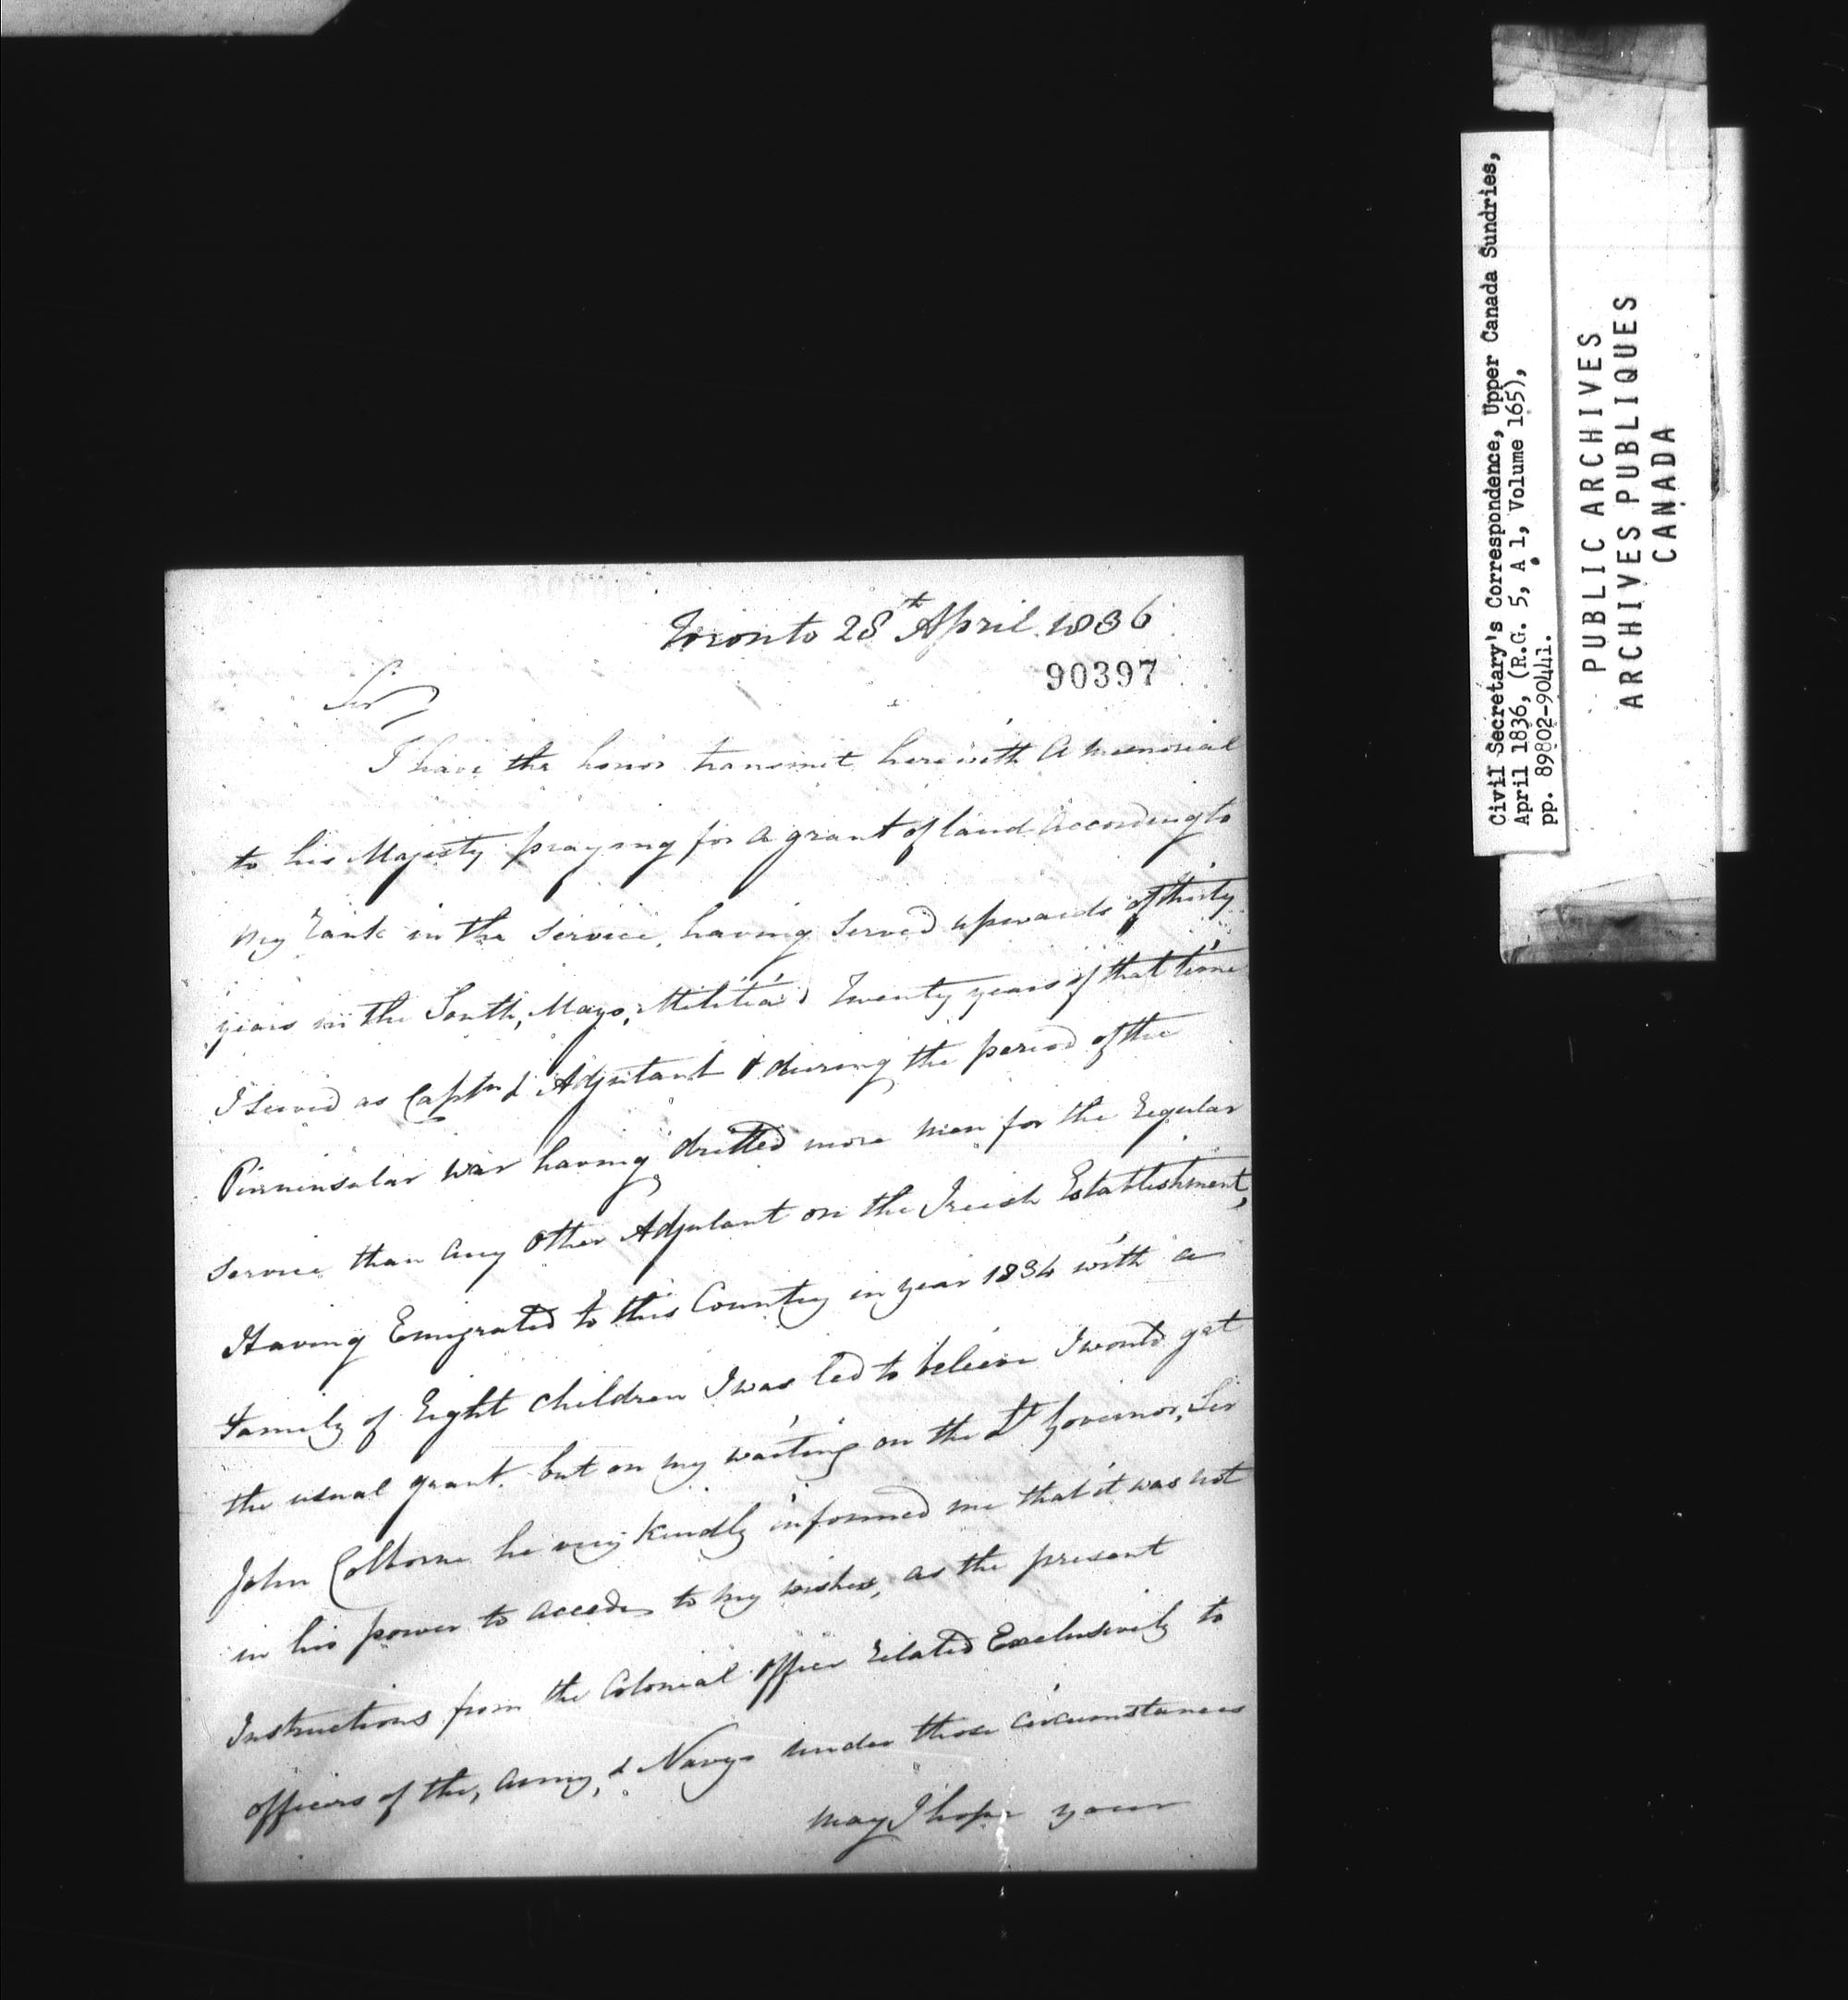 Toronto 28th April 1836
90397
Sir
I have the honor transmit herewith a memorial
to his Majesty praying for a grant of land according to
my rank in the Service, having Served upwards of thirty
years in the South, Mayo, Militia, Twenty years of that time
I Served as Captn & Adjutant & during the period of the
Pinninsular war having drilled more men for the regular
service than any other Adjutant on the Irish Establishment,
Having Emigrated to this Country in year 1834 with a
Family of Eight children I was led to believe I would get
the usual grant. but on my waiting on the Lt Governor, Sir
John Colborne he very kindly informed me that it was not
in his power to accede to my wishes, as the present
Instructions from the Colonial office related Exclusively to
officers of the, army, & Navy under those circumstances
may I hope your
Civil Secretary's Correspondence, Upper Canada Sundries,
April 1836, (R.G. 5, A 1, Volume 165),
pp. 89802-90441.
PUBLIC ARCHIVES
ARCHIVES PUBLIQUES
CANADA